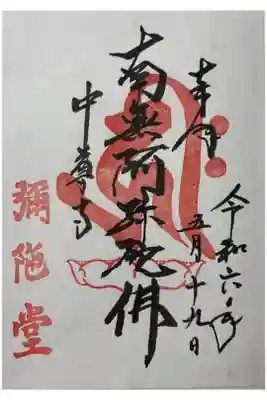 奉拝
令和六年
五月十九日
南無阿弥陀佛
中尊寺
彌陀堂